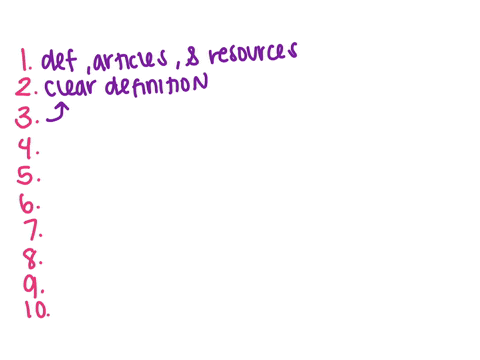 1. def, articles, & resources
2. clear definition
3. ⤴
4.
5.
6.
7.
8.
9.
10.